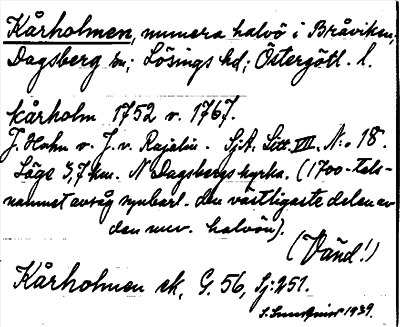 Kårholmen, numera halvö i Bråviken;
Dagsberg sn; Lösings hd; Östergötl. l.
Kårholm 1752 v. 1767.
J. Hahn v. J. v. Rajalin. SjA. Litt. VII. N:o 18.
Läge 3,7 km. N Dagsbergs kyrka. (1700-tals-
namnet avsåg uppenbarl. den västligaste delen av
den nuv. halvön).
(Vänd!)
Kårholmen ek, G. 56, Sj: 251.
1939.